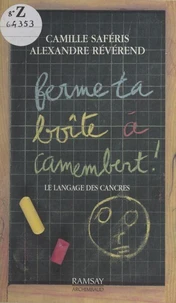 8° Z
64353
CAMILLE SAFÉRIS
ALEXANDRE RÉVÉREND
ferme ta
boîte à
camembert !
LE LANGAGE DES CANCRES
RAMSAY
ARCHIMBAUD